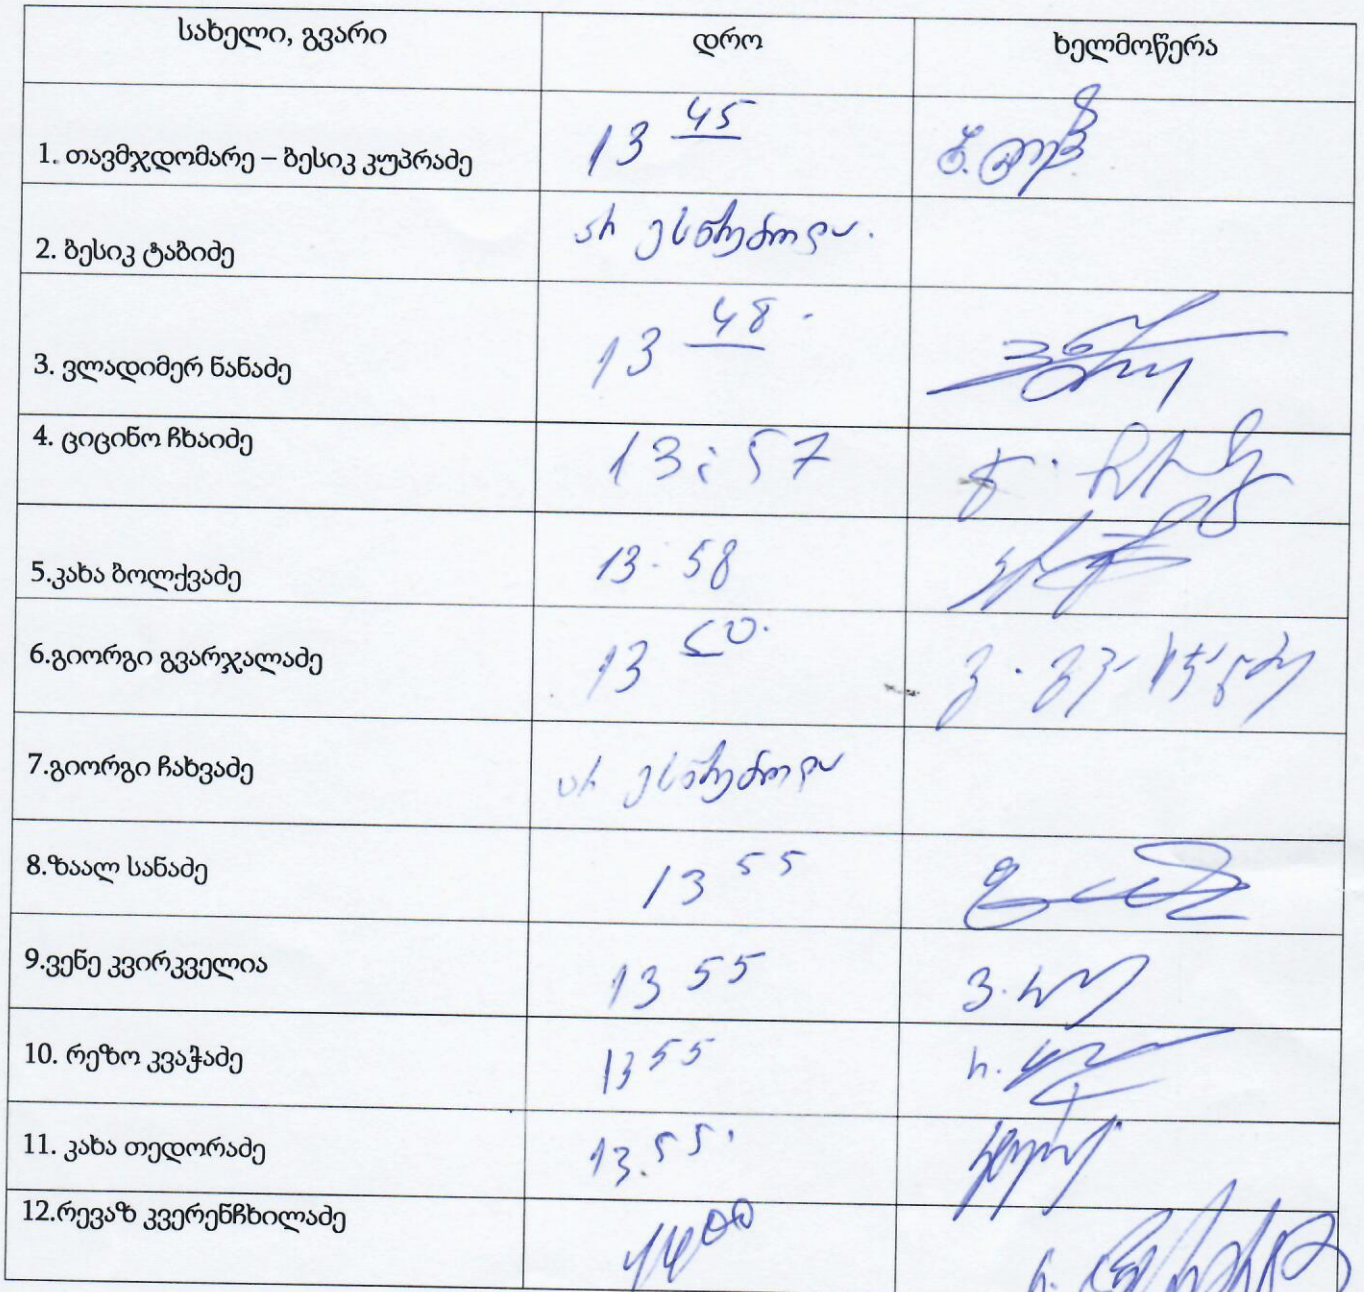 სახელი, გვარი დრო ხელმოწერა
1. თავმჯდომარე – ბესიკ კუპრაძე 13 45
2. ბესიკ ტაბიძე არ ესწრებოდა.
3. ვლადიმერ ნანაძე 13 48
4. ციცინო ჩხაიძე 13:57
5.კახა ბოლქვაძე 13.58
6.გიორგი გვარჯალაძე 13 50.
7.გიორგი ჩახვაძე არ ესწრებოდა
8.ზაალ სანაძე 13 55
9.ვენე კვირკველია 13 55
10. რეზო კვაჭაძე 13 55
11. კახა თედორაძე 13.55.
12.რევაზ კვერენჩხილაძე 14 00